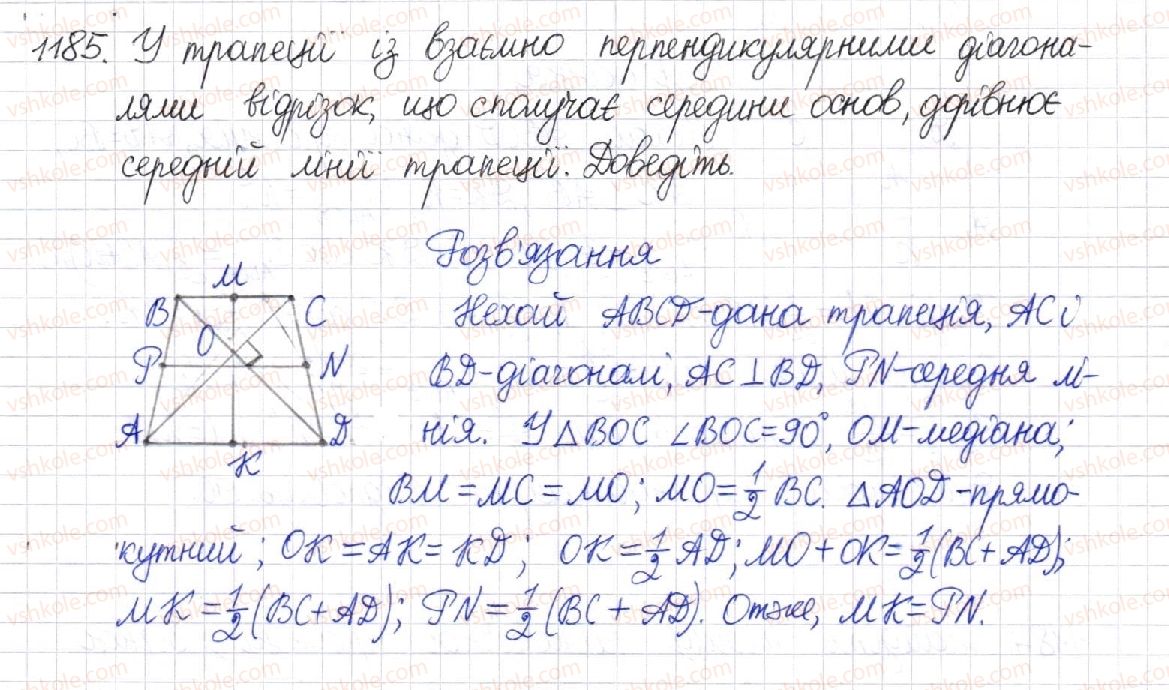 1185. У трапеції із взаємно перпендикулярними діагона-
лями відрізок, що сполучає середини основ, дорівнює
середній лінії трапеції. Доведіть.
Розв'язання
M
B C
O
P N
A D
K
Нехай ABCD-дана трапеція, AC і
BD-діагоналі, AC⊥BD, PN-середня лі-
нія. У △BOC ∠BOC=90°, OM-медіана;
BM=MC=MO; MO=1/2 BC. △AOD-прямо-
кутний; OK=AK=KD; OK=1/2 AD; MO+OK=1/2(BC+AD);
MK=1/2(BC+AD); PN=1/2(BC+AD). Отже, MK=PN.
vshkole.com